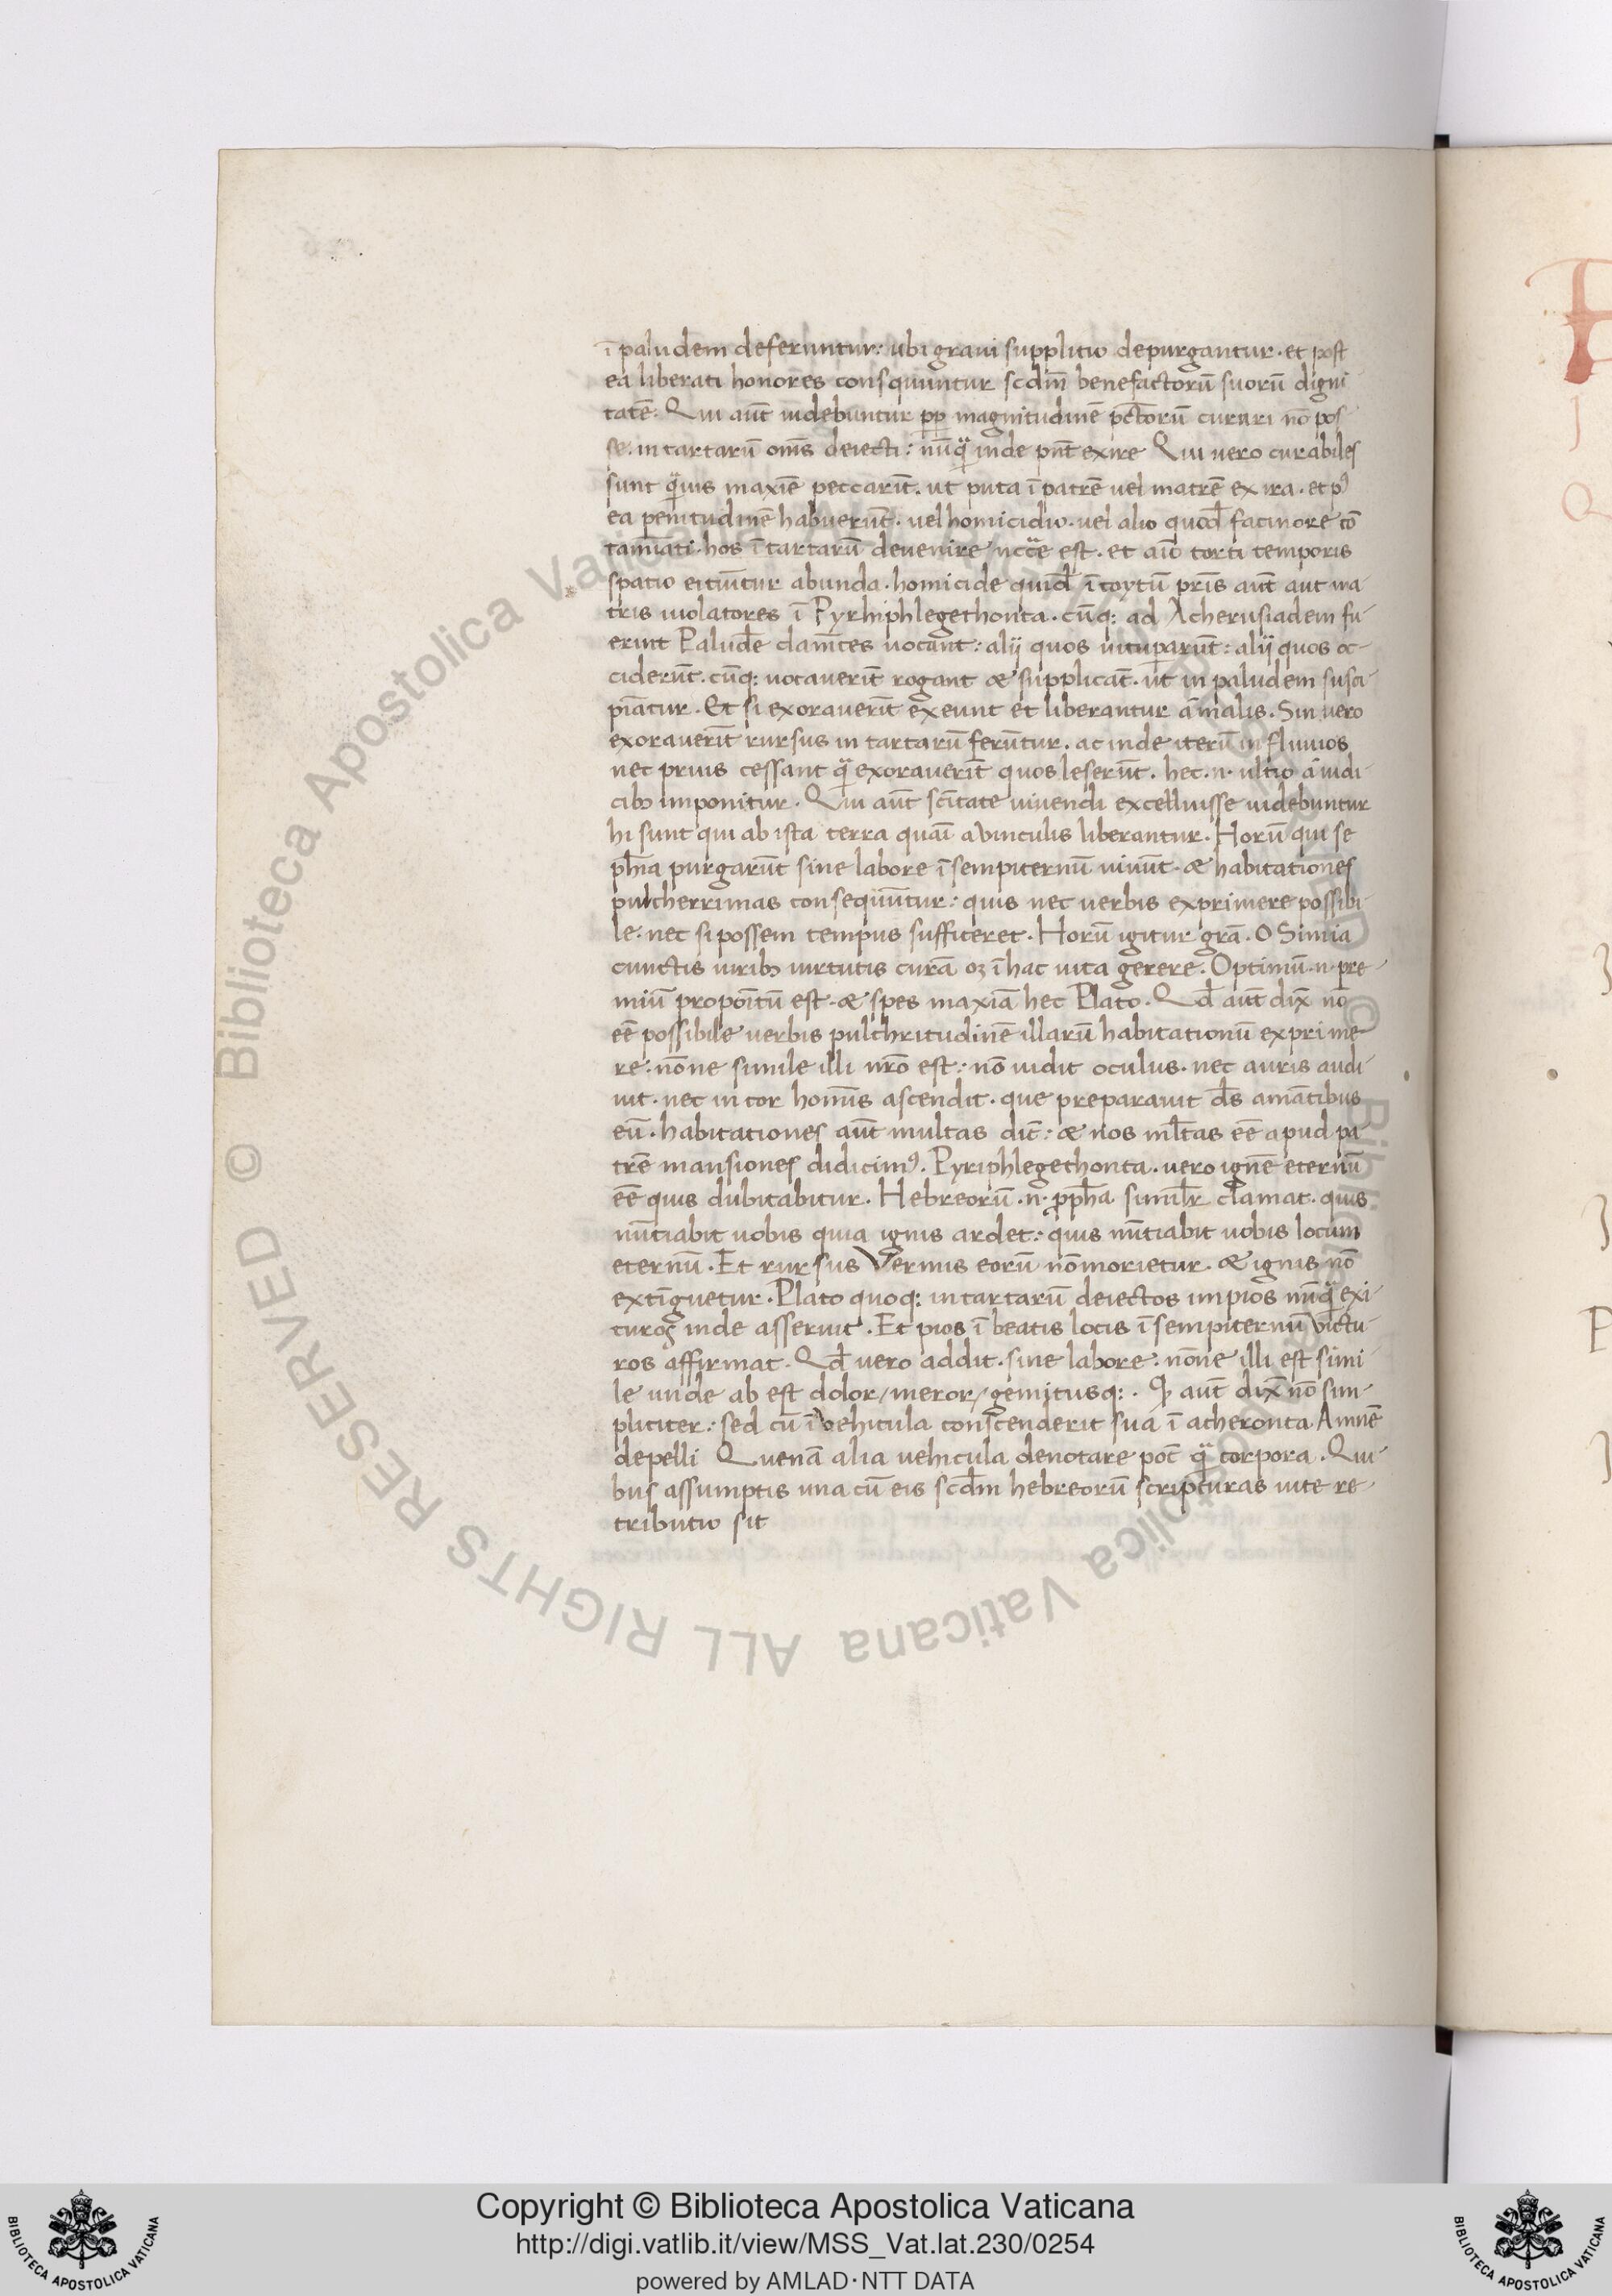 ī paludem deferuntur: ubi graui supplitio depurgantur. et post
ea liberati honores consquuntur scdm̄ benefactorū suorū digni-
tatē. Qui aūt uidebuntur pp magnitudinē pctorū curari nō pos-
se. in tartarū om̄s deiecti: nūq̄ inde pn̄t exire Qui uero curabiles
sunt q̄uis maxīe peccarīt. ut puta ī patrē uel matrē ex ira. et pꝰ
ea penitudinē habuerūt. uel homicidio. uel alio quod̄ facinore cō
tamīati. hos ī tartarū deuenire nccē est. et aīo torti temporis
spatio eitiūtur abunda. homicide quid̄ ī coytū pr̄is aūt aut ma-
tris uiolatores ī Pyrhiphlegethonta. cūq: ad Acherusiadem fu-
erint Paludē clamātes uocant: alij quos uituparūt: alij quos oc-
ciderūt. cūq: uocauerīt rogant & supplicāt. ut in paludem susci-
piātur. Et si exorauerīt exeunt et liberantur a malis. Sin uero
exorauerīt rursus in tartarū ferūtur. ac inde iterū in fluuios
nec prius cessant q̄ exorauerīt quos leserūt. hec .n. ultio a iudi-
cibꝫ imponitur. Qui aūt scītate uiuendi excelluisse uidebuntur
hi sunt qui ab ista terra quāī a uinculis liberantur. Horū qui se
ph̄ia purgarūt sine labore ī sempiternū uiuūt. & habitationes
pulcherrimas consequūtur: quis nec uerbis exprimere possibi-
le. nec si possem tempus sufficeret. Horū igitur grā. O Simia
cunctis uiribꝫ uirtutis curā oꝫ ī hac uita gerere. Optimū .n. pre-
miū propoītū est. & spes maxīa hec Plato. Qd̄ aūt dix̄ nō
eē possibile uerbis pulchritudinē illarū habitationū exprime-
re: nōne simile illi nr̄o est: nō uidit oculus. nec auris audi-
uit. nec in cor homīs ascendit. que preparauit d̄s amātibus
eū. habitationes aūt multas dic̄: & nos ml̄tas eē apud pa-
trē mansiones didicimꝰ. Pyriphlegethonta. uero ignē eternū
eē quis dubitabitur. Hebreorū .n. pph̄a simil̄r clamat. quis
nūtiabit uobis quia ignis ardet: quis nūtiabit uobis locum
eternū. Et rursus Vermis eorū nō morietur. & ignis nō
extīguetur. Plato quoq: in tartarū deiectos impios nūq̄ exi-
turoꝝ inde asseruit. Et pios ī beatis locis ī sempiternū victu-
ros affirmat. Qd̄ uero addit. sine labore: nōne illi est simi-
le unde ab est dolor/ meror/ gemitusq: . Qꝫ aūt dix̄ nō sim-
pliciter: sed cū ī vehicula conscenderit sua ī acheronta Amnē
depelli Quenā alia uehicula denotare pōt q̄ corpora. Qui-
bus assumptis una cū eis scd̄m hebreorū scripturas uite re-
tributio sit
© Biblioteca Apostolica Vaticana ALL RIGHTS RESERVED
Copyright © Biblioteca Apostolica Vaticana
http://digi.vatlib.it/view/MSS_Vat.lat.230/0254
powered by AMLAD·NTT DATA
BIBLIOTECA APOSTOLICA VATICANA
BIBLIOTECA APOSTOLICA VATICANA